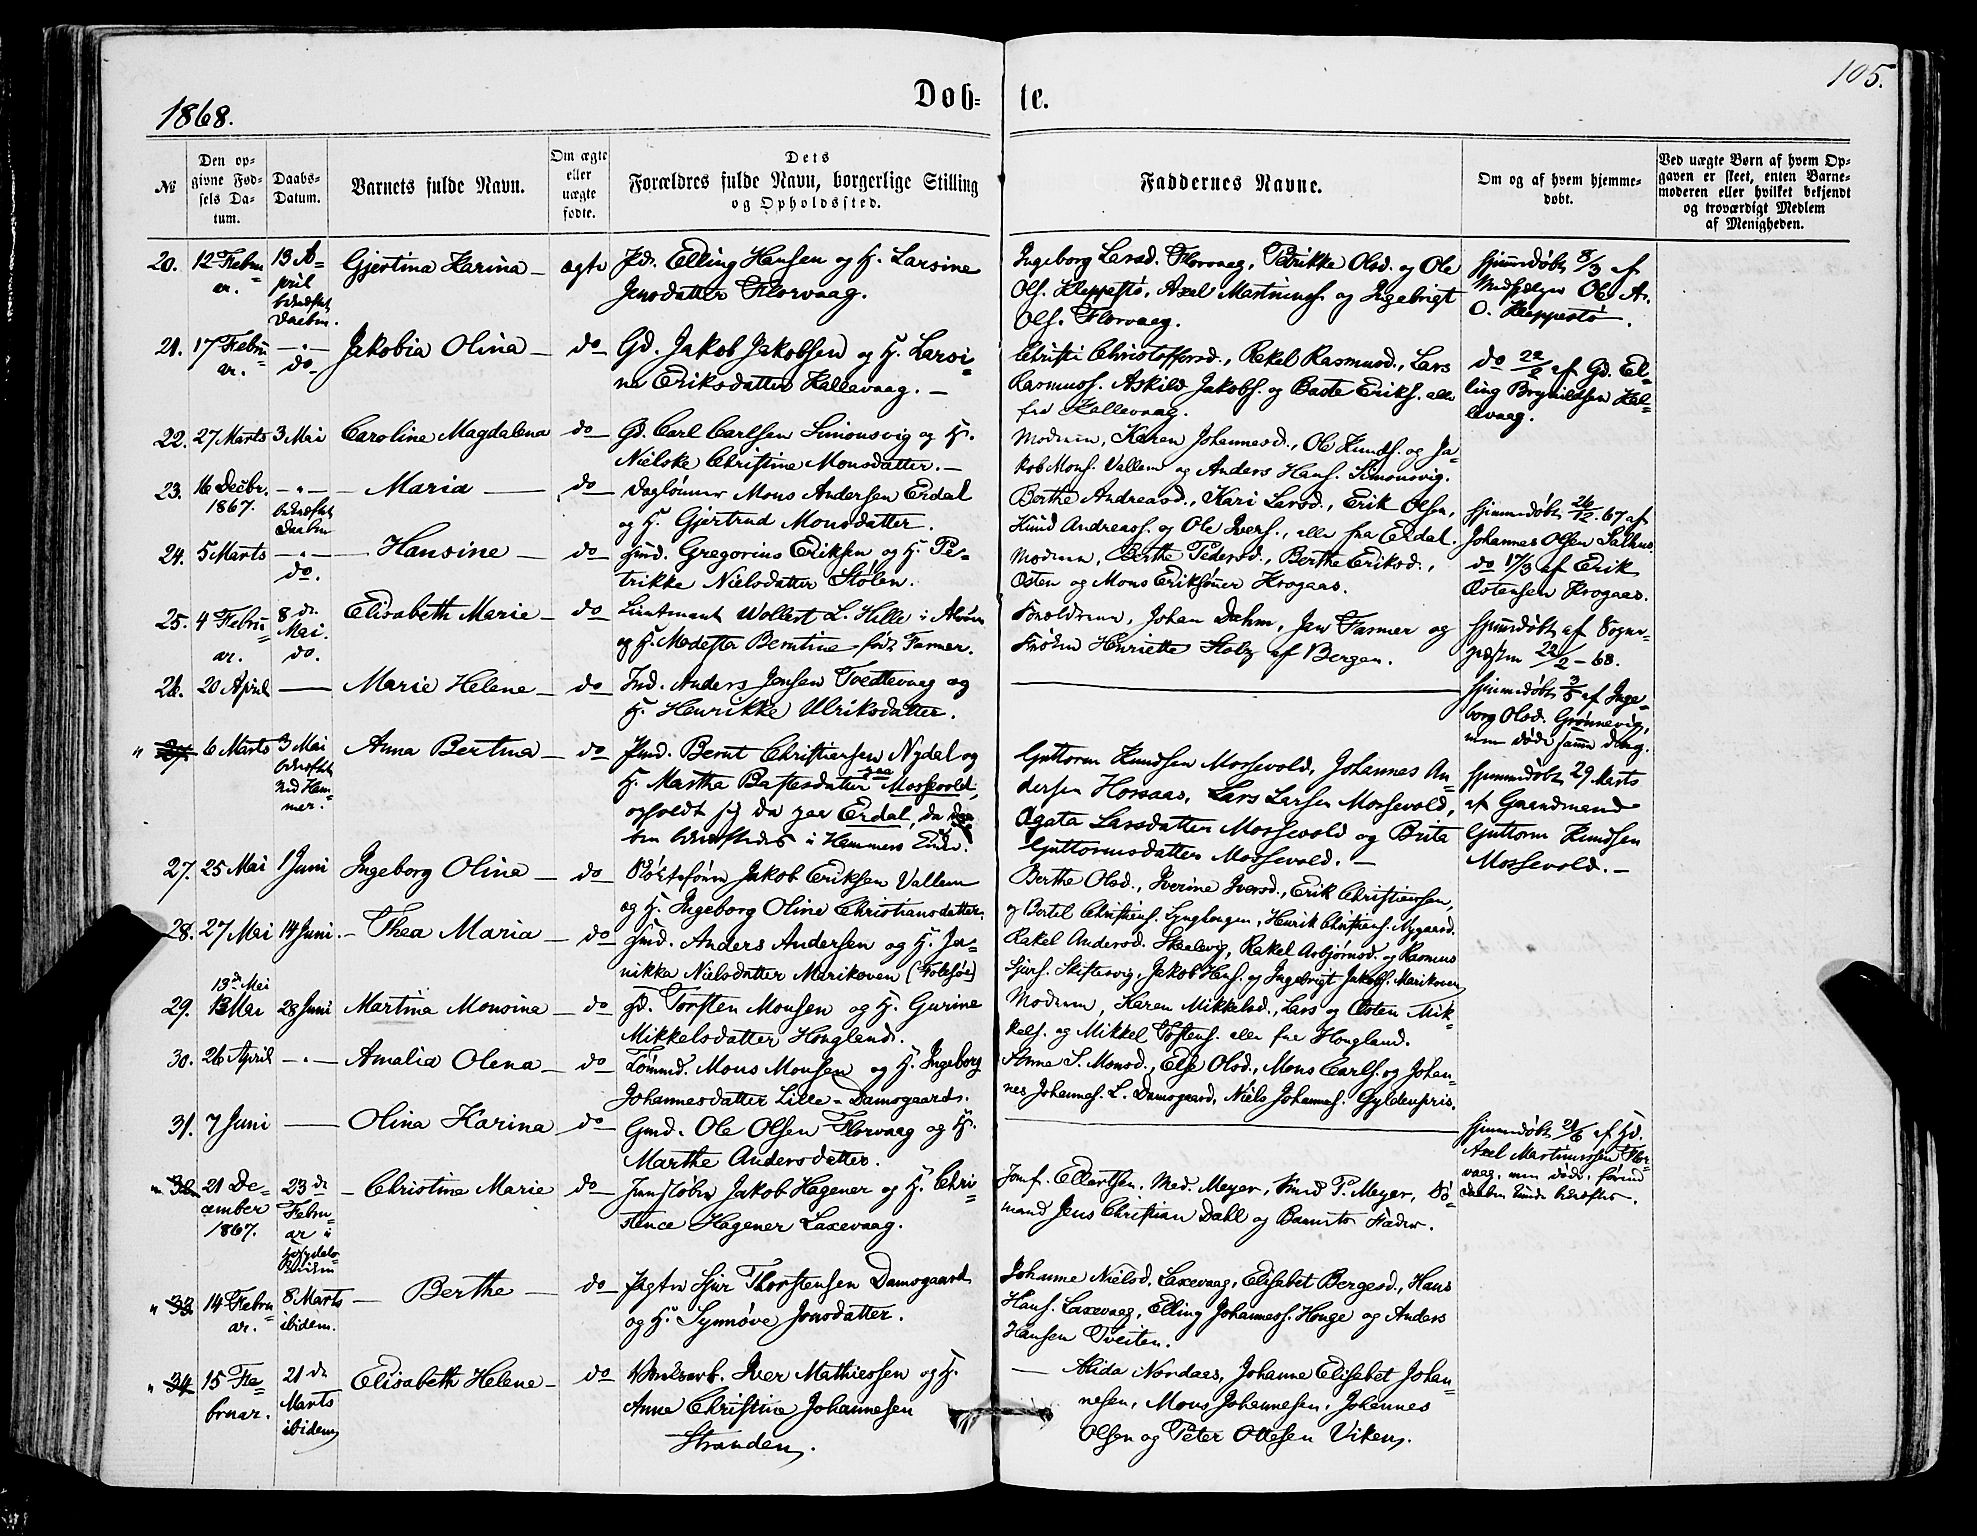 105.
1868.
Døb- te.
№
Den op-
givne Fød-
sels Da-
tum.
Daabs-
Datum.
Barnets fulde Navn.
Om ægte
eller
uægte
fødte.
Dets
Forældres fulde Navn, borgerlige Stilling
og Opholdssted.
Faddernes Navne.
Om og af hvem hjemme-
døbt.
Ved uægte Børn af hvem Op-
gaven er skeet, enten Barne-
moderen eller hvilket bekjendt
og troværdigt Medlem
af Menigheden.
20.
12 Febru
ar.
13 A-
pril
bekræftet
Daaben.
Gjertina Karina
ægte
Elling Hansen og H. Larsine
Jensdatter Florvaag.
Ingeborg Larsd. Florvaag, Petrikke Olsd. og Ole
Ols. Kleppestø, Axel Martinuss. og Ingebrigt
Ols. Florvaag.
Hjemmedøbt 8/3 af
Medhjælper Ole A.
O. Kleppestø.
21.
17 Febru
ar.
- " -
do
Jakobia Olina
do
Gd. Jakob Jakobsen og H. Larsi-
ne Eriksdatter Hallevaag.
Christi Christoffersd., Rakel Rasmusd., Lars
Rasmuss. Askild Jakobs. og Baste Eriks. alle
fra Hallevaag.
do 22/2 af Gd. El-
ling Brynildsen Hal-
levaag.
22.
27 Marts
3 Mai
Caroline Magdalena
do
Gd. Carl Carlsen Simonsvig og H.
Nielske Christine Monsdatter.
Moderen, Karen Johannesd., Ole Knuds. og Ja-
kob Mons. Vallem og Anders Hans. Simonsvig.
23.
16 Decbr.
1867.
- " -
bekræftet
Daaben
Maria
do
Daglønner Mons Andersen Erdal
og H. Gjertrud Monsdatter.
Berthe Andreasd., Kari Larsd., Erik Olsen,
Knud Andreass. og Ole Ivers., alle fra Erdal.
Hjemmedøbt 26/12. 67 af
Johannes Olsen Salhus.
24.
5 Marts
- " -
do.
Hansine
do
Hmd. Gregorius Eriksen og H. Pe-
trikke Nielsdatter Stølen.
Moderen, Berthe Pedersd., Berthe Eriksd.,
Østen og Mons Eriksønner Krogaas.
do 17/3 af Erik
Østensen Krogaas.
25.
4 Febru
ar.
8 de
Mai.
do.
Elisabeth Marie
do
Lieutenant Wollert L. Hille i Alvøen
og H. Modesta Berntine født Fasmer.
Forældrene, Johan Dahm, Jan Fasmer og
Frøken Henriette Stolz af Bergen.
Hjemmedøbt af Sogne-
præsten 22/2 - 68.
26.
20 April
Marie Helene
do
Ind. Anders Jensen Tvedtevaag og
H. Henrikke Ulriksdatter.
Hjemmedøbt 3/5 af Inge-
borg Olsd. Grønnevig,
men døde samme Dag.
"
6 Marts
3 Mai
bekræftet
ved Ham-
mer.
Anna Bertina
do
Hmd. Bernt Christiansen Nydal og
H. Martha Bastesdatter Mossevold,
opholdt sig da paa Erdal, da
ben bekræftedes i Hammers Kirke.
Guttorm Knudsen Mossevold, Johannes An-
dersen Horsaas, Lars Larsen Mossevold,
Agata Larsdatter Mossevold og Brita
Guttormsdatter Mossevold. —
Hjemmedøbt 29 Marts
af Gaardmand
Guttorm Knudsen
Mossevold. —
27.
25 Mai
1 Juni
Ingeborg Olina
do
Jakob Eriksen Vallem
og H. Ingeborg Oline Christiansdatter.
Berthe Olsd., Iverine Iversd., Erik Christiansen,
og Bertel Christians. Lynghougen, Henrik Christians. Nygaard.
28.
27 Mai
14 Juni.
Thea Maria
do
Hmd. Anders Andersen og H. Jo-
nikka Nielsdatter Marikoven
Rakel Andersd. Skaalevig, Rakel Asbjørnsd. og Rasmus
Sjurs. Skiftesvig, Jakob Hans. og Ingebrigt Jakobs. Marikoven
29.
13de Mai
28 Juni
Martina Monsina
do
Gd. Torsten Monsen og H. Gurine
Mikkelsdatter Hougland.
Moderen, Karen Mikkelsd., Lars og Østen Mik-
kels. og Mikkel Tostens. alle fra Hougland.
30.
26 April
- " -
Amalia Olena
do
Tømmd. Mons Monsen og H. Ingeborg
Johannesdatter Lille-Damsgaard.
Anne S. Monsd., Else Olsd., Mons Carls. og Johan-
nes Johanness. L. Damsgaard, Niels Johanness. Gyldenpris.
31.
7 Juni
Olina Karina
do
Gmd. Ole Olsen Florvaag og H.
Marthe Andersdatter.
Hjemmedøbt 21/6 af Gd.
Axel Martinussen Flor-
vaag, men døde, førend
Daaben kunde bekræftes.
32
21 De-
cember
1867.
23 de
Febru-
ar i
Christine Marie
do
Jakob Hagener og H. Chri-
stence Hagener Laxevaag.
Jomf. Ellertsen, Mad. Meyer, Knud P. Meyer, Sø-
mand Jens Christian Dahl og Barnets Fader.
33
14 Febru
ar.
8 Marts
ibidem.
Berthe
do
Jægter Sjur Thorstensen Damsgaard
og H. Synnøve Jonsdatter.
Johanne Nielsd. Laxevaag, Elisabet Bergesd., Hans
Hans. Laxevaag, Elling Johanness. Houge og Anders
Hansen Tveiten.
34
15 Fe-
bruar.
21 de
Marts
ibidem
Elisabeth Helene
do
Iver Mathiessen og H.
Anne Christine Johannesen
Stranden.
Alida Nordaas, Johanne Elisabet Johan-
nesen, Mons Johannesen, Johannes
Olsen og Peter Ottesen Viken.